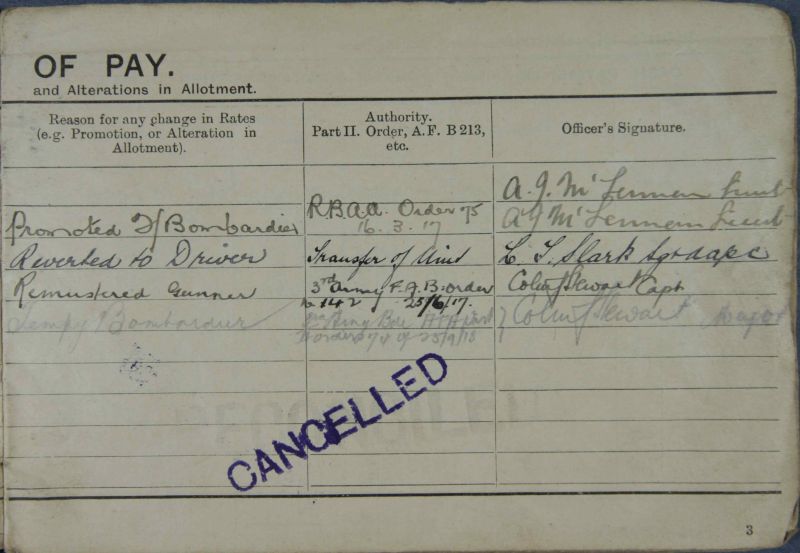 OF PAY.
and Alterations in Allotment.
Reason for any change in Rates
(e.g. Promotion, or Alteration in
Allotment).
Authority.
Part II. Order, A.F. B 213,
etc.
Officer's Signature.
A. J. McLennan Lieut
Promoted T/Bombardier
R.B.A.A. Order 75
16.3.17
A J McLennan Lieut
Reverted to Driver
Transfer of Unit
L. T. Slark Sgt aapc
Remustered Gunner
3rd Army F.A.B. Order
No 142 25/6/17.
Colin J Stewart Capt
Tempy Bombardier
Army Bde AFA
Order 74 of 25/9/18
Colin J Stewart Major
CANCELLED
3